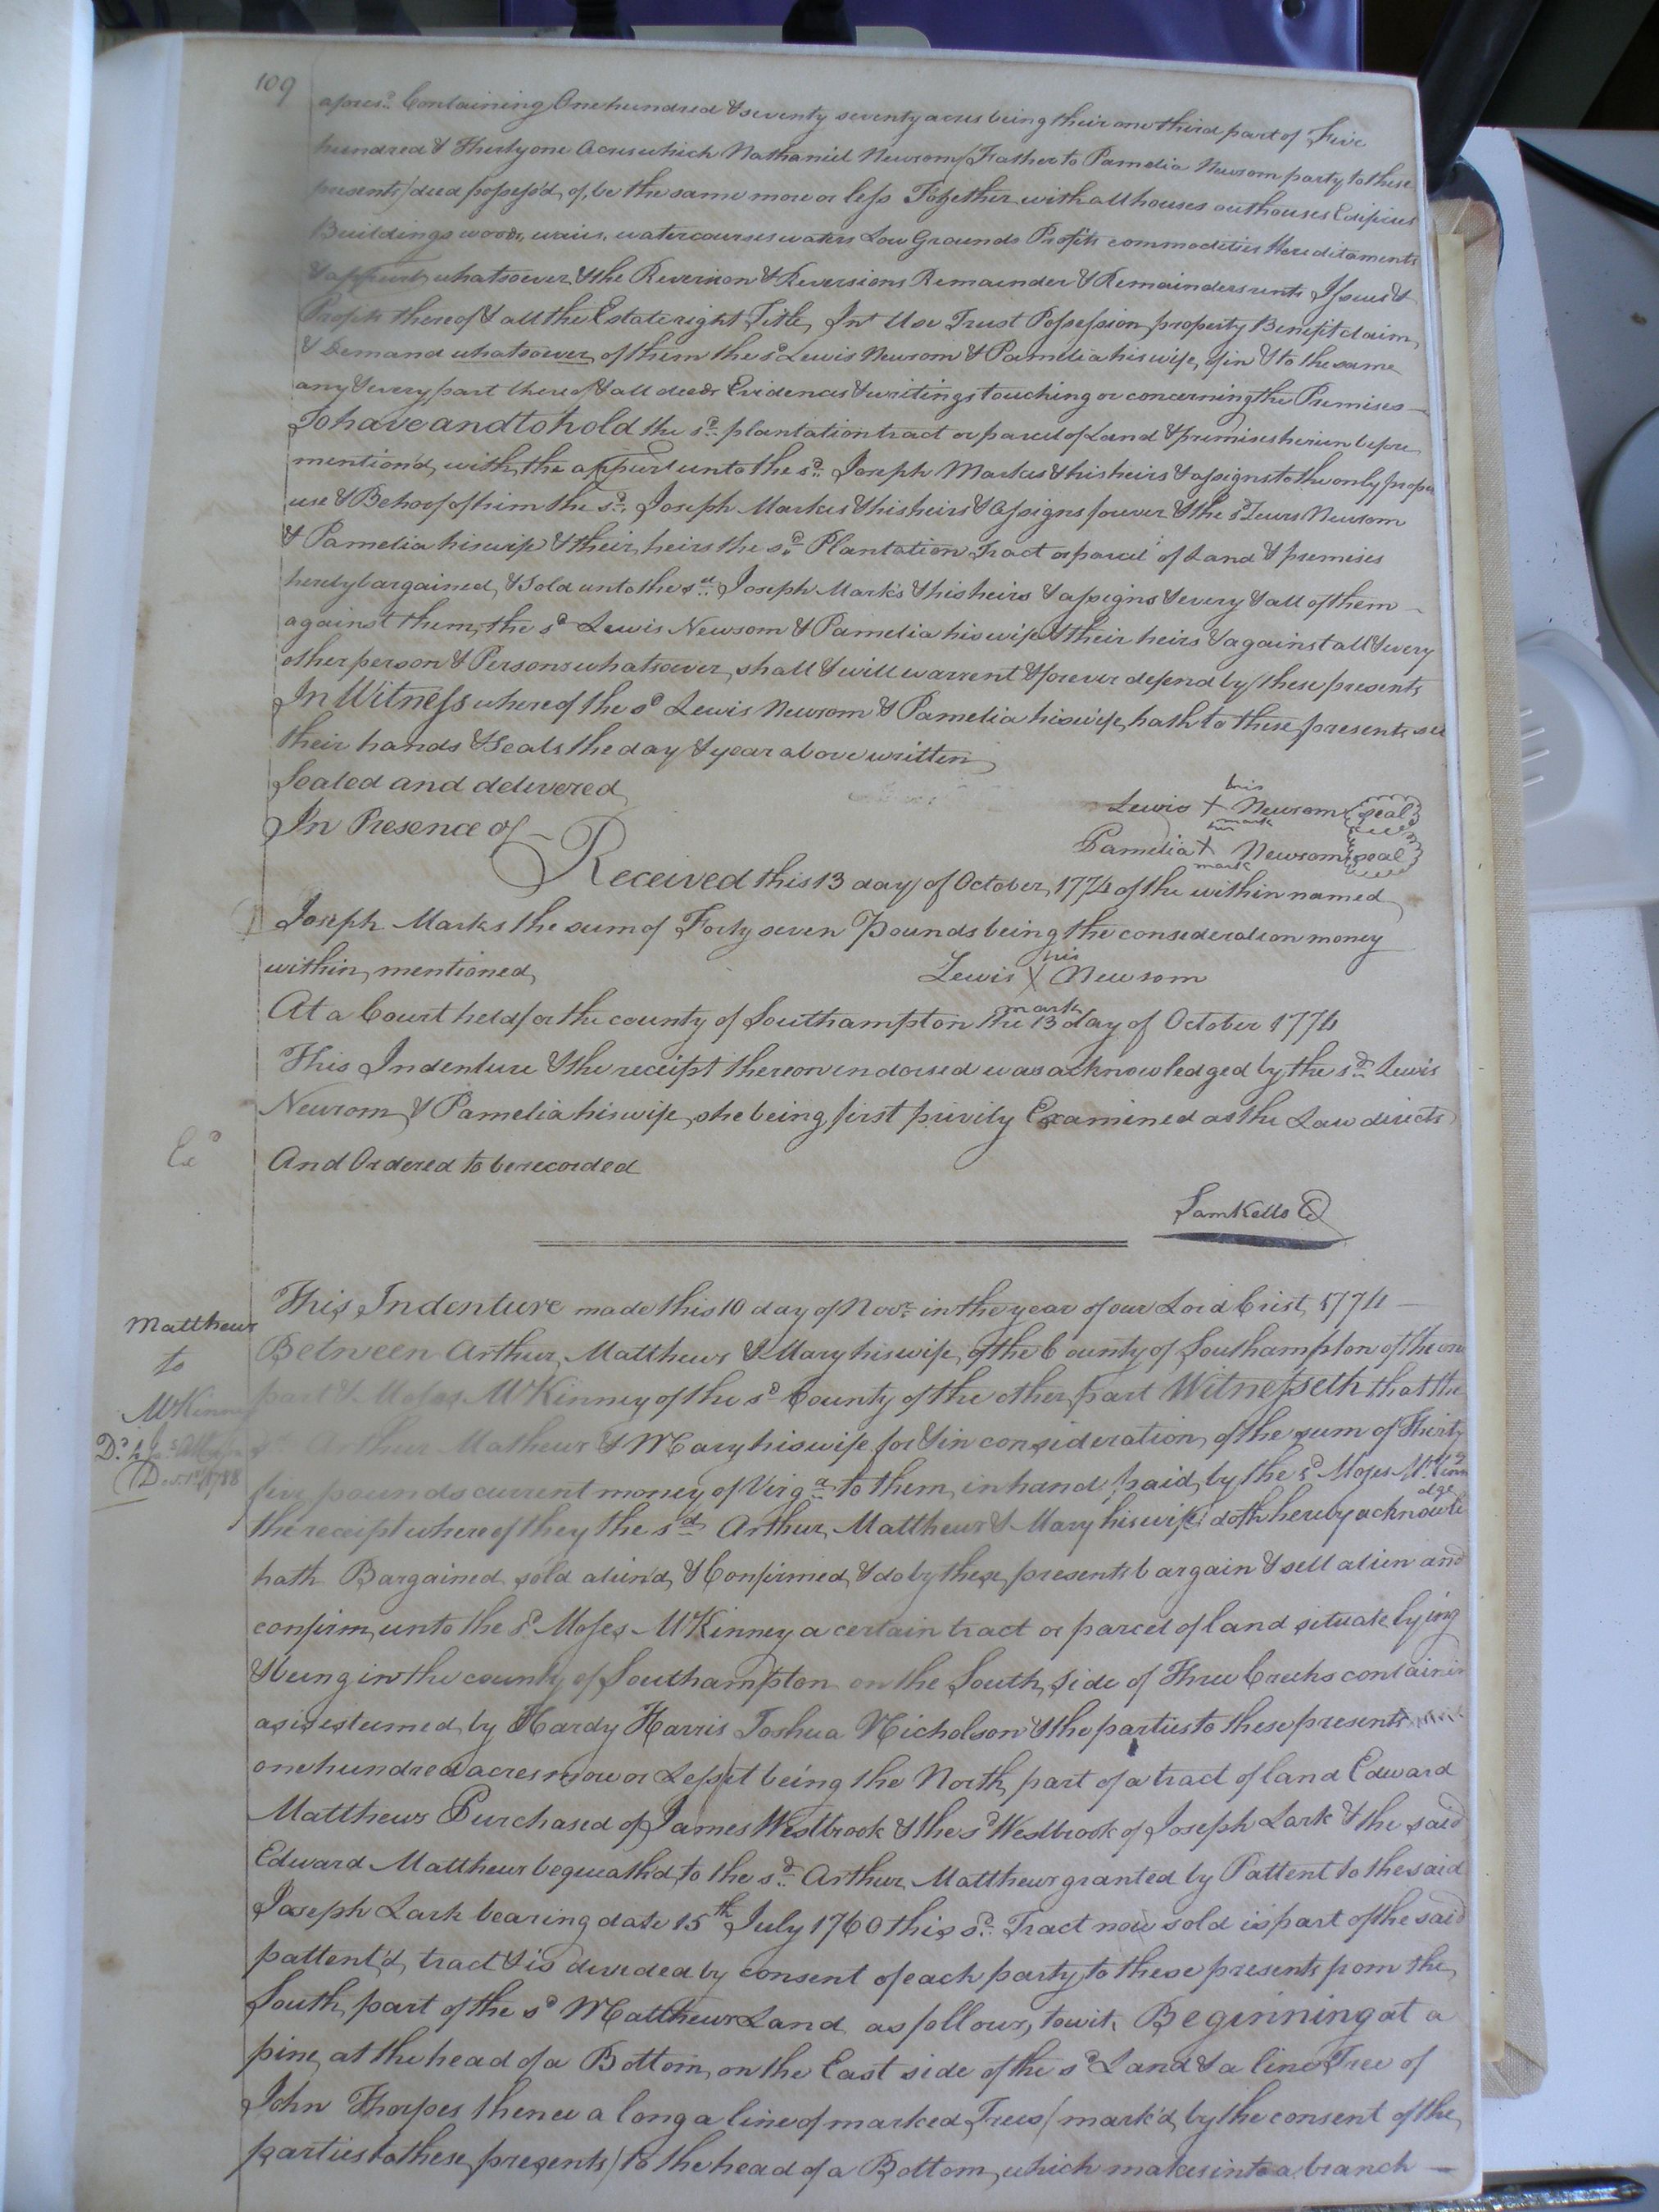 109
afores.d Containing One hundred & seventy seventy acres being their one third part of Five
hundred & Thirty one Acres which Nathaniel Newsom (Father to Pamelia Newsom party to these
presents) died possess'd of, be the same more or less Together with all houses outhouses Edifices
Buildings woods, waies, watercourses waters Low Grounds Profits commodities Hereditaments
& appurts whatsoever & the Revercion & Reversions Remainder & Remainders rents Issues &
Profits thereof & all the Estate right Title, Int Use Trust Possession property Benefit claim
& Demand whatsoever of them the sd Lewis Newsom & Pamelia his wife, of in & to the same
any & every part thereof & all deeds Evidences & writings touching or concerning the Premises —
To have and to hold the sd plantation tract or parcel of Land & premises herein before
mention'd, with the appurt unto the sd Joseph Markes & his heirs & assigns to the only proper
use & Behoof of him the sd Joseph Markes & his heirs & Assigns forever & the sd Lewis Newsom
& Pamelia his wife & their heirs the sd Plantation Tract or parcel of Land & premises
hereby bargained, & Sold unto the sd Joseph Mark's & his heirs & assigns & every & all of them –
against them, the sd Lewis Newsom & Pamelia his wife & their heirs & against all & every
other person & Persons whatsoever, shall & will warrent & forever defend by these presents
In Witness whereof the sd Lewis Newsom & Pamelia his wife, hath to these presents set
their hands & Seals the day & year above written
Sealed and delivered
In Presence of –
his
Lewis + Newsom (seal)
mark
her
Pamelia + Newsom (seal)
mark
Received this 13 day of October, 1774 of the within named
Joseph Marks the sum of Forty seven Pounds being the consideration money
within, mentioned,
his
Lewis X Newsom
mark
At a Court held for the county of Southampton the 13 day of October 1774
This Indenture & the receipt thereon endorsed was acknowledged by the sd Lewis
Newsom & Pamelia his wife, she being first privily Examined as the Law directs
And Ordered to be recorded
Exd
Sam Kello C
Matthews
to
McKinney
This Indenture made this 10 day of Novr in the year of our Lord Crist, 1774 —
Between Arthur, Matthews & Mary his wife, of the County of Southampton of the one
part & Moses McKinney of the sd County of the other part Witnesseth that the
Arthur Mathews & Mary his wife for & in consideration, of the sum of Thirty
five pounds current money of Virga to them, in hand, paid, by the sd Moses McKinney
the receipt whereof they the sd Arthur, Matthews & Mary his wife doth hereby acknowledge
hath Bargained sold aliend, & Confirmed, & do by these presents bargain & sell alien and
confirm, unto the sd Moses McKinney a certain tract or parcel of land situate lying
& being in the county of Southampton on the South, side of Three Creeks containing
as is esteemed, by Hardy Harris Joshua Nicholson & the parties to these presents
one hundred acres more or Less it being the North part of a tract of land Edward
Matthews Purchased of James Westbrook & the sd Westbrook of Joseph Lark & the said
Edward Matthews bequeath'd, to the sd Arthur Matthews granted by Pattent to the said
Joseph Lark bearing date 15th July 1760 this sd Tract now sold is part of the said
pattent'd, tract & is devided by consent of each party to these presents from the
South, part of the sd Matthews Land as follows, towit. Beginning at a
pine, at the head of a Bottom, on the East side of the sd Land & a line Tree of
John Thorpes thence a long a line of marked Trees (mark'd by the consent of the
parties to these presents) to the head of a Bottom, which makes into a branch —